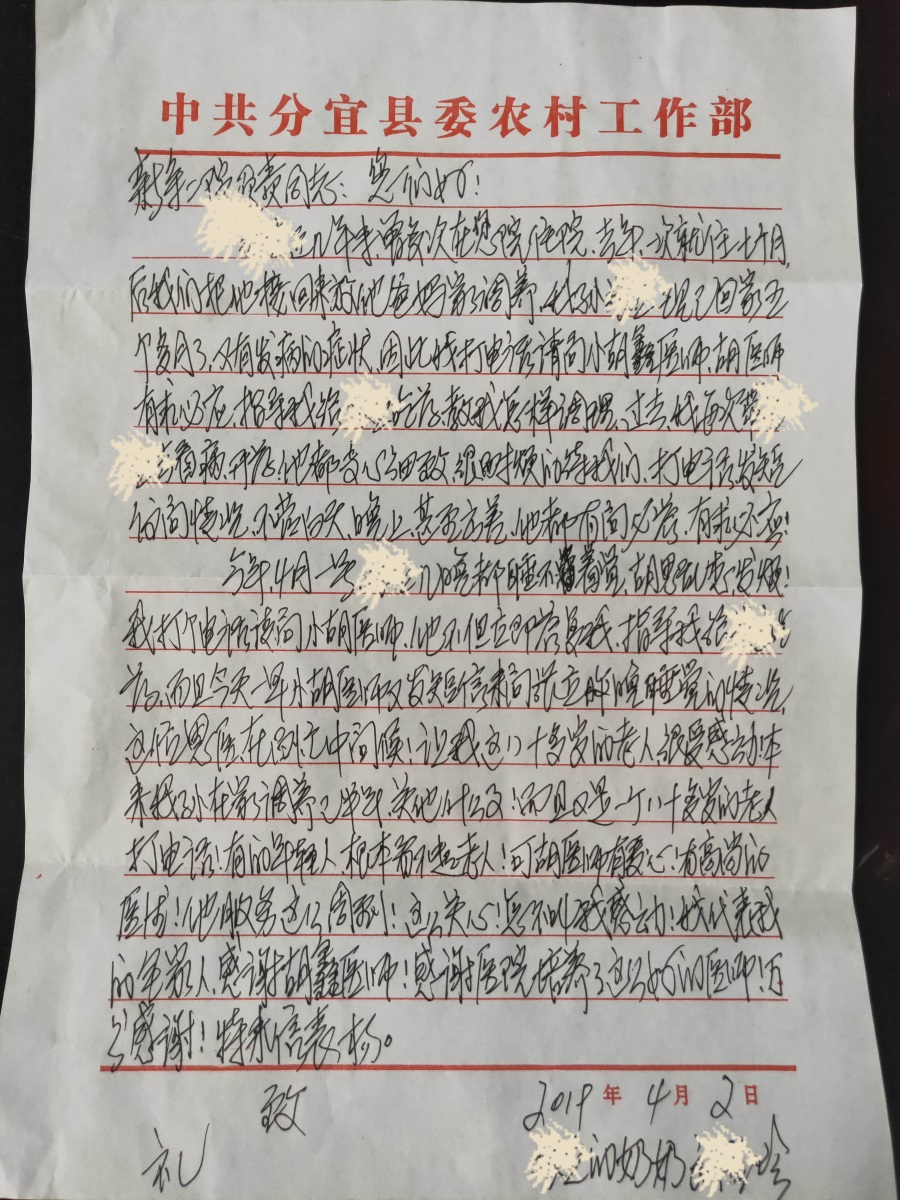 中共分宜县委农村工作部
负责同志：您们好！
几年来，曾多次在您院住院，去年一次就住七个月，
后我们把他接回来放他爸妈家调养，现已回家五
个多月了，又有发病的症状，因此我打电话请问小胡鑫医师，胡医师
有求必应，指导我给吃药，教我怎样调理，过去，我每次带
去看病、开药，他都专心细致，很耐烦的待我们，打电话、发短
信问情况，不管白天、晚上，甚至，他都有问必答，有求必应！
今年4月一号几晚都睡不着觉，胡思乱想，发烦！
我打个电话请问小胡医师，他不但立即答复我，指导我给
药，而且今天一早小胡医师又发短信来问昨晚睡觉的情况，
这位医在百忙中问候！让我这八十多岁的老人很受感动！本
来我在家调养，关他什么事！而且又是一个八十多岁的老人
打电话！有的年轻人根本看不起老人！可胡医师有爱心！有高尚的
医德！他服务这么周到！这么关心！怎不叫我感动！我代表我
的全家人，感谢胡鑫医师！感谢医院培养了这么好的医师！万
分感谢！特来信表扬。
致
2019年4月2日
礼
的奶奶